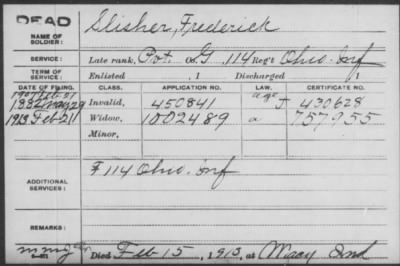 DEAD
NAME OF SOLDIER: Slisher, Frederick
SERVICE: Late rank, Pvt. Co. G, 114 Reg't Ohio. Inf
TERM OF SERVICE: Enlisted , 1 Discharged 1
DATE OF FILING. CLASS. APPLICATION NO. LAW. CERTIFICATE NO.
1907 Feb. 21
1882 May 29 Invalid, 450841 age J 430628
1913 Feb 21 Widow, 1002489 a 757955
Minor,
ADDITIONAL SERVICES: F 114 Ohio. Inf
REMARKS:
Died Feb 15, 1913, at Ind